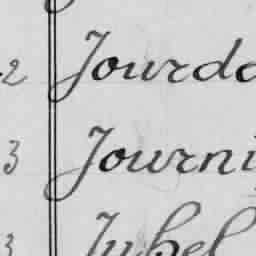 2 Jourda
3 Journi
3 Jubel